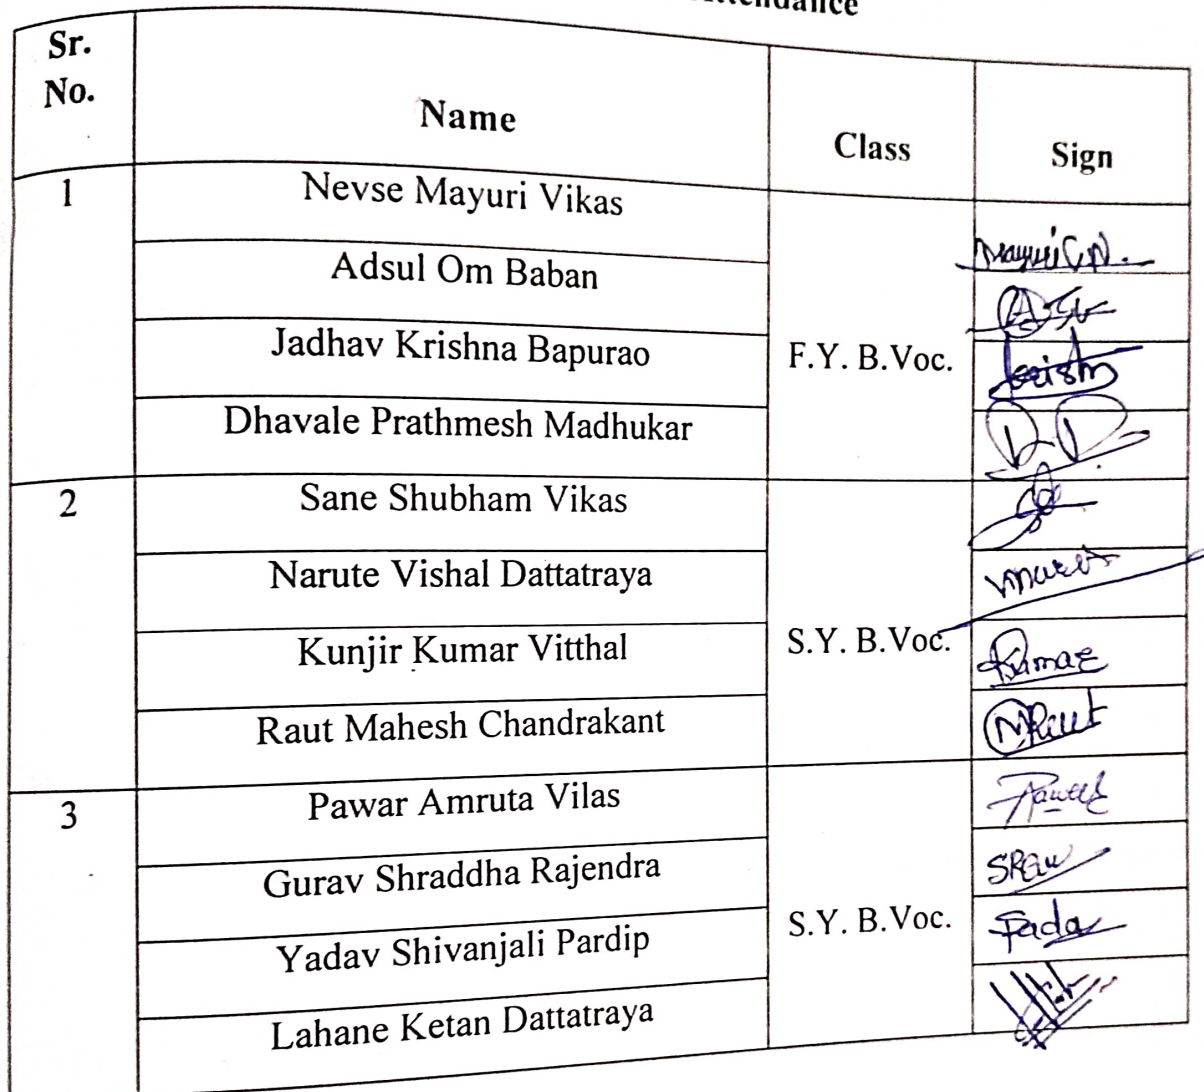 Sr. No. Name Class Sign
1 Nevse Mayuri Vikas F.Y. B.Voc.
Adsul Om Baban
Jadhav Krishna Bapurao
Dhavale Prathmesh Madhukar
2 Sane Shubham Vikas S.Y. B.Voc.
Narute Vishal Dattatraya
Kunjir Kumar Vitthal
Raut Mahesh Chandrakant
3 Pawar Amruta Vilas S.Y. B.Voc.
Gurav Shraddha Rajendra
Yadav Shivanjali Pardip
Lahane Ketan Dattatraya